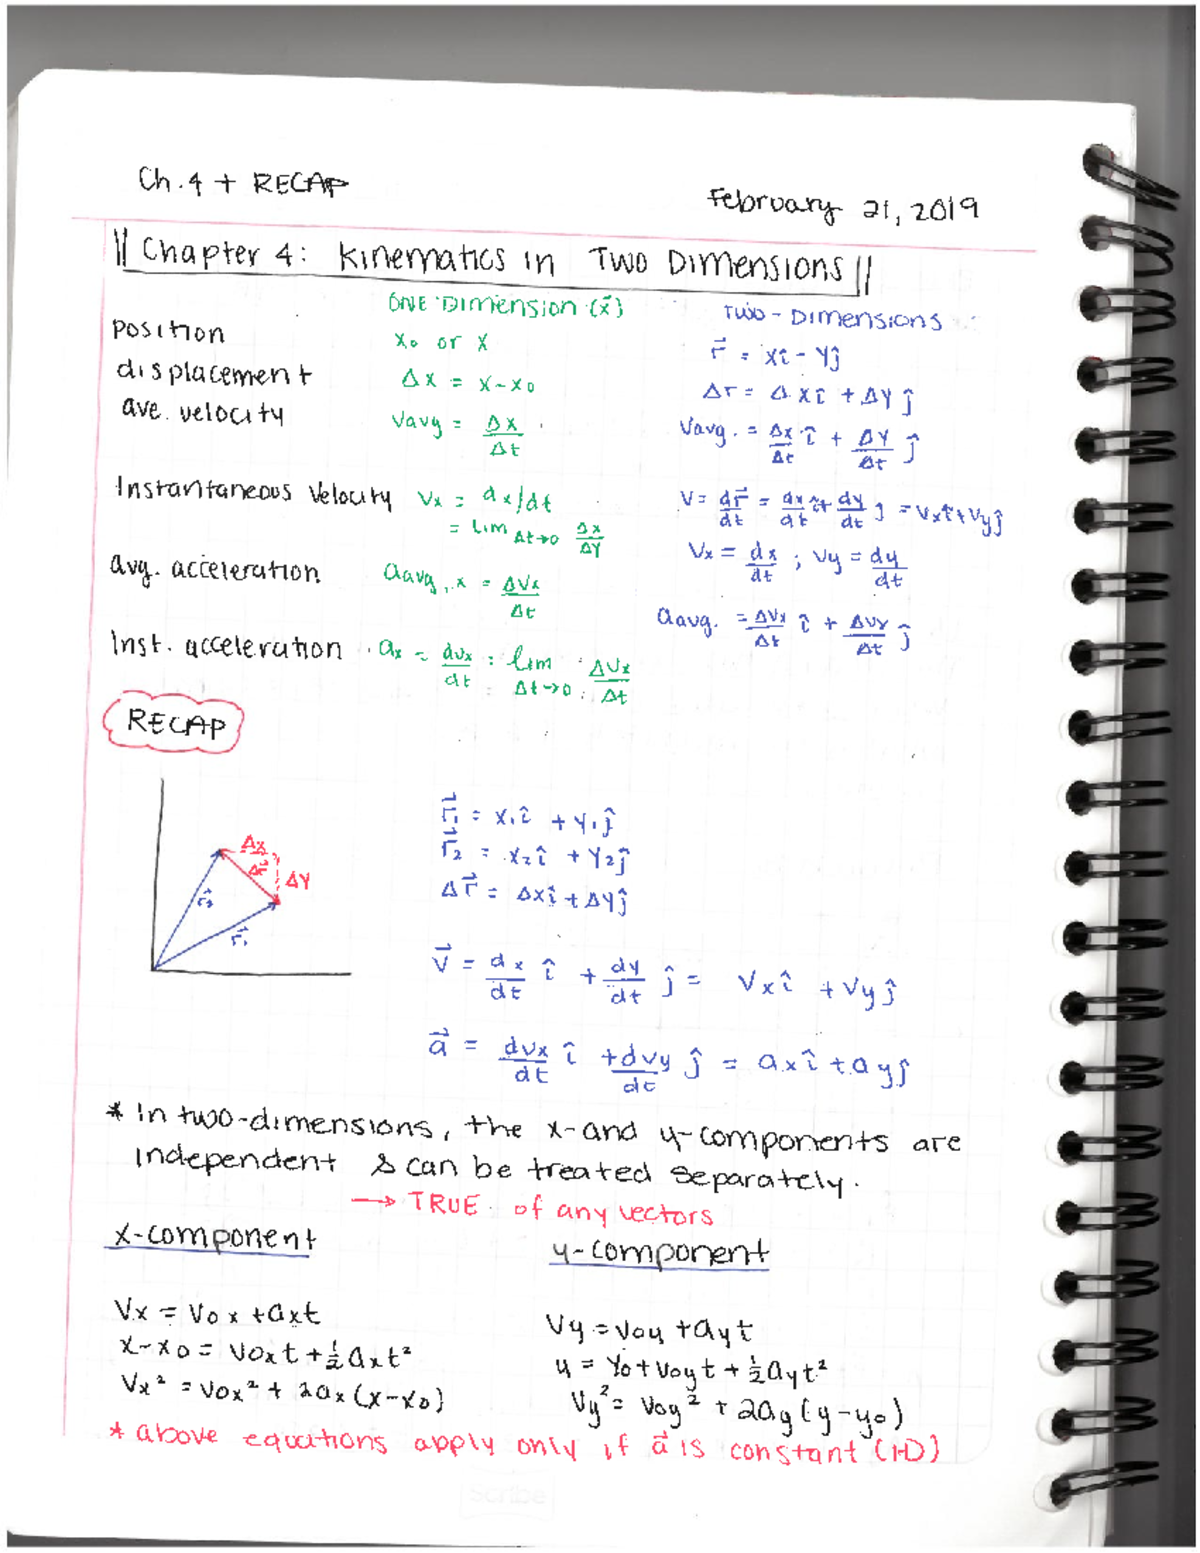 Ch.4 + RECAP
February 21, 2019
Chapter 4: Kinematics in Two Dimensions
ONE Dimension (x⃗)
TWO-Dimensions
position
x₀ or x
r⃗ = xî - yĵ
displacement
Δx = x-x₀
Δr = Δxî + Δyĵ
ave. velocity
Vavg = Δx/Δt
Vavg. = Δx/Δt î + Δy/Δt ĵ
Instantaneous Velocity
Vx = dx/dt
= Lim Δt→0 Δx/ΔY
V = dr⃗/dt = dx/dt î + dy/dt ĵ = Vxî+Vyĵ
Vx = dx/dt ; Vy = dy/dt
avg. acceleration
aavg, x = ΔVx/Δt
aavg. = ΔVx/Δt î + ΔVy/Δt ĵ
Inst. acceleration
ax = dvx/dt = lim Δt→0 ΔVx/Δt
RECAP
Δx
Δr⃗
ΔY
r⃗₂
r⃗₁
r⃗₁ = x₁î + y₁ĵ
r⃗₂ = x₂î + y₂ĵ
Δr⃗ = Δxî + Δyĵ
V⃗ = dx/dt î + dy/dt ĵ = Vxî + Vyĵ
a⃗ = dvx/dt î + dvy/dt ĵ = axî + ayĵ
* In two-dimensions, the x-and y-components are
independent & can be treated separately.
→ TRUE of any vectors
x-component
y-component
Vx = V₀x + axt
Vy = V₀y + ayt
x-x₀ = V₀xt + ½axt²
y = y₀ + V₀yt + ½ayt²
Vx² = V₀x² + 2ax(x-x₀)
Vy² = V₀y² + 2ay(y-y₀)
* above equations apply only if a⃗ is constant (1-D)
Scribe